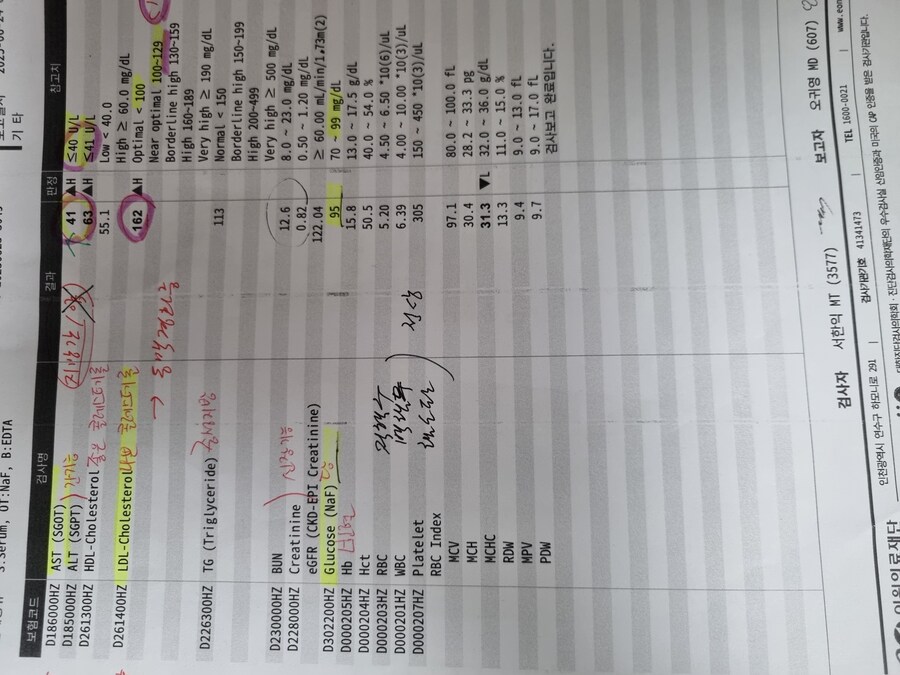 보험코드 검사명 결과 판정 참고치
D186000HZ AST (SGOT) 41 ▲H ≤40 U/L
D185000HZ ALT (SGPT) 63 ▲H ≤41 U/L
D261300HZ HDL-Cholesterol 55.1 Low < 40.0
High ≥ 60.0 mg/dL
D261400HZ LDL-Cholesterol 162 ▲H Optimal < 100
Near optimal 100~129
Borderline high 130~159
High 160~189
Very high ≥ 190 mg/dL
D226300HZ TG (Triglyceride) 113 Normal < 150
Borderline high 150~199
High 200~499
Very high ≥ 500 mg/dL
D230000HZ BUN 12.6 8.0 ~ 23.0 mg/dL
D228000HZ Creatinine 0.82 0.50 ~ 1.20 mg/dL
eGFR (CKD-EPI Creatinine) 122.04 ≥ 60.00 mL/min/1.73m(2)
D302200HZ Glucose (NaF) 당 95 70 ~ 99 mg/dL
D000205HZ Hb 15.8 13.0 ~ 17.5 g/dL
D000204HZ Hct 50.5 40.0 ~ 54.0 %
D000203HZ RBC 적혈구 5.20 4.50 ~ 6.50 *10(6)/uL
D000201HZ WBC 백혈구 6.39 4.00 ~ 10.00 *10(3)/uL
D000207HZ Platelet 혈소판 정상 305 150 ~ 450 *10(3)/uL
RBC Index
MCV 97.1 80.0 ~ 100.0 fL
MCH 30.4 28.2 ~ 33.3 pg
MCHC 31.3 ▼L 32.0 ~ 36.0 g/dL
RDW 13.3 11.0 ~ 15.0 %
MPV 9.4 9.0 ~ 13.0 fL
PDW 9.7 9.0 ~ 17.0 fL
검사보고 완료입니다.
검사자 서한익 MT (3577) 보고자 오귀영 MD (607)
인천광역시 연수구 하모니로 291 | 검사기관기호 41341473 | TEL 1600-0021 |
이원의료재단